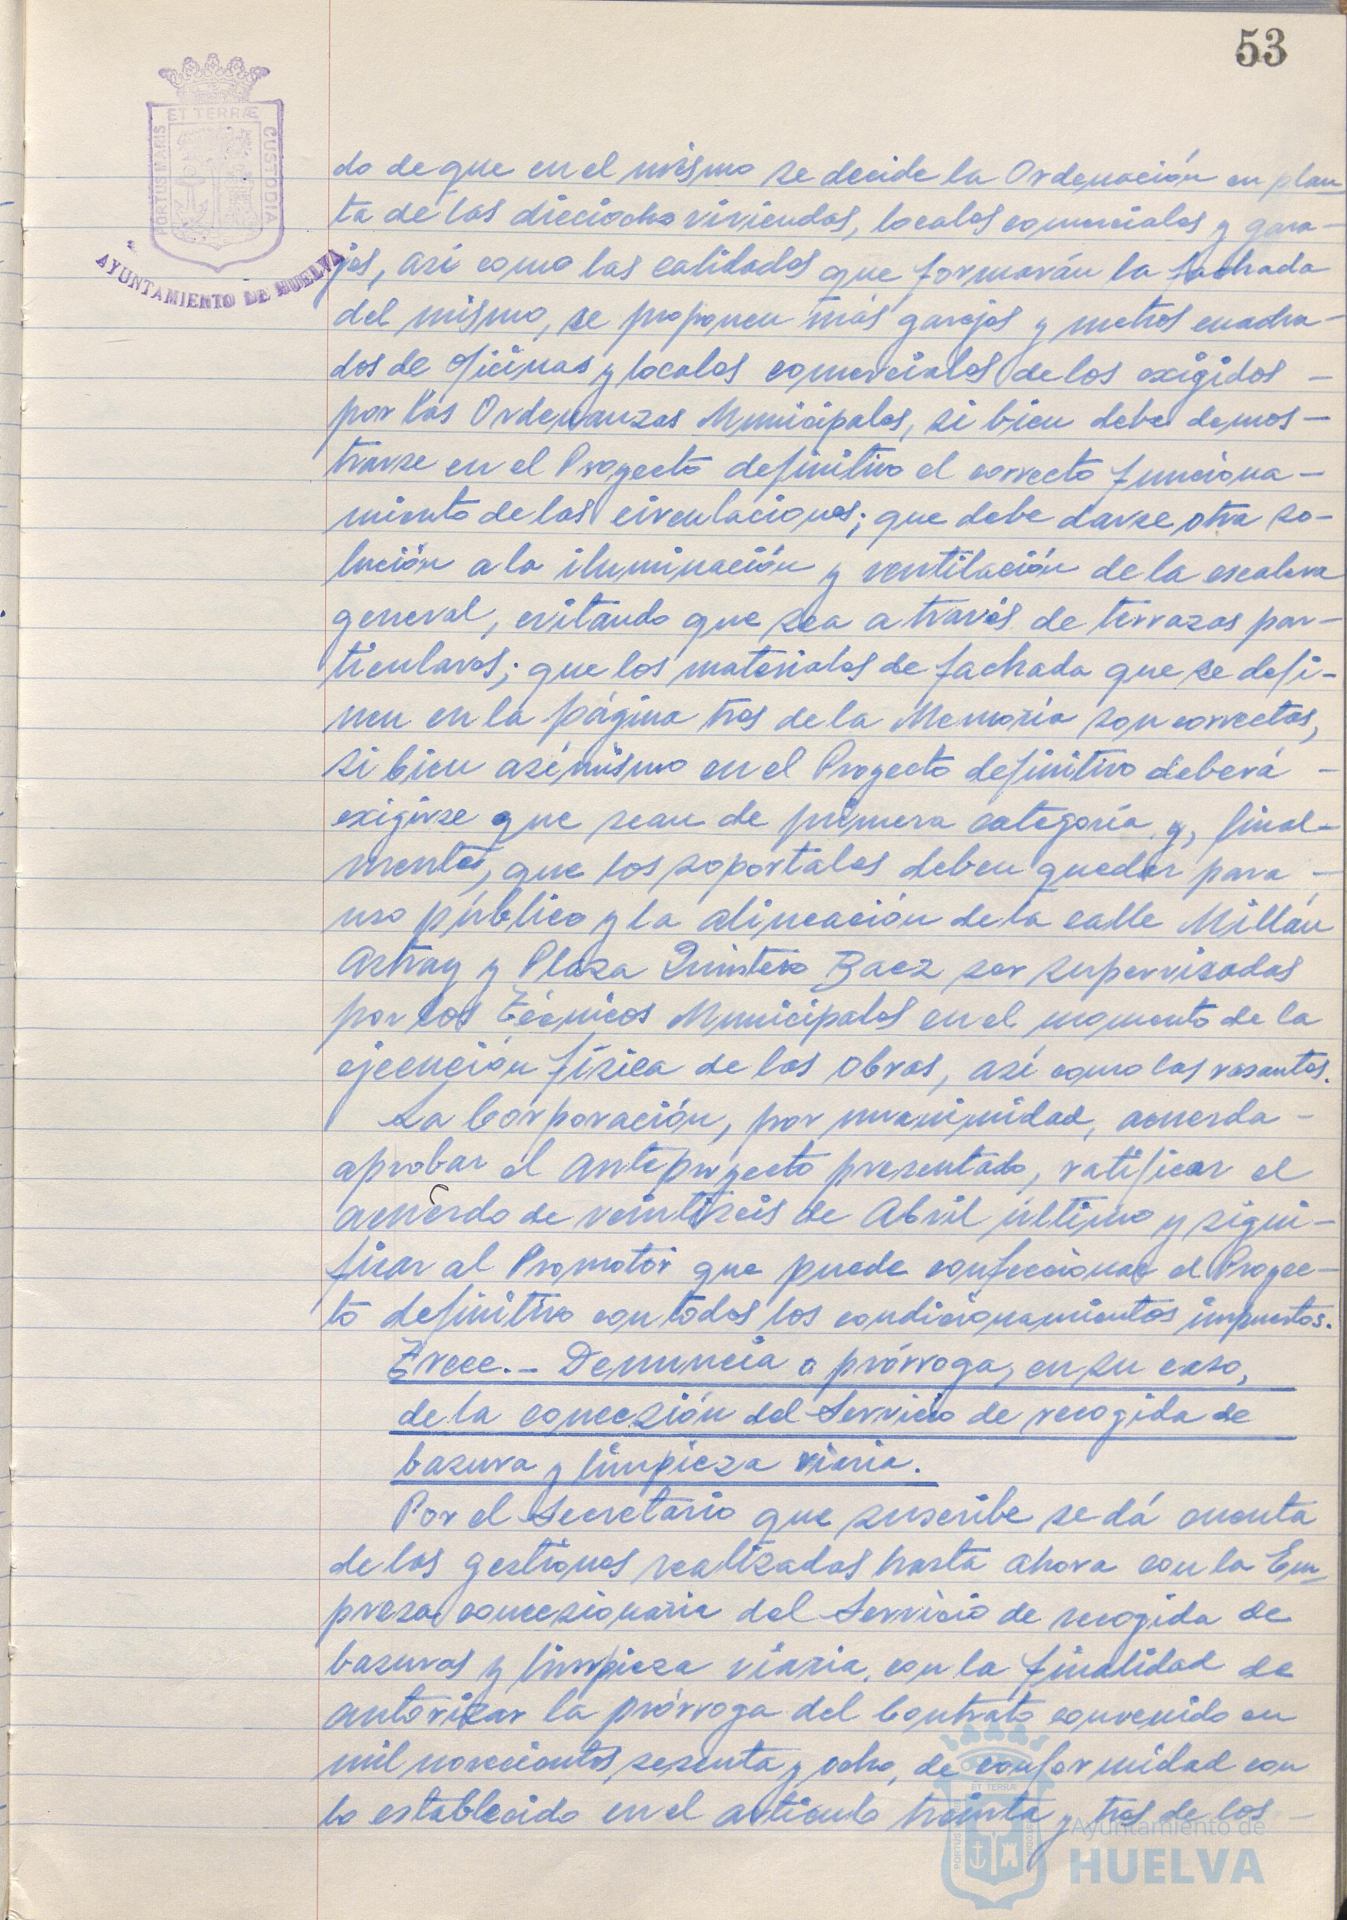 53
ET TERRÆ
PORTUS MARIS
CUSTODIA
AYUNTAMIENTO DE HUELVA
do de que en el mismo se decide la Ordenación en plan
ta de las dieciocho viviendas, locales comerciales y gara-
jes, así como las calidades que formarán la fachada
del mismo, se proponen más garajes y metros cuadra-
dos de oficinas y locales comerciales de los exigidos -
por las Ordenanzas Municipales, si bien debe demos-
trarse en el Proyecto definitivo el correcto funciona-
miento de las circulaciones; que debe darse otra so-
lución a la iluminación y ventilación de la escalera
general, evitando que sea a través de terrazas par-
ticulares; que los materiales de fachada que se defi-
nen en la página tres de la Memoria son correctos,
si bien asímismo en el Proyecto definitivo deberá -
exigirse que sean de primera categoría y, final-
mente, que los soportales deben quedar para -
uso público y la alineación de la calle Millán
Astray y Plaza Quintero Baez ser supervisadas
por los Técnicos Municipales en el momento de la
ejecución física de las obras, así como las rasantes.
La Corporación, por unanimidad, acuerda -
aprobar el anteproyecto presentado, ratificar el
acuerdo de veintiseis de Abril último y signi-
ficar al Promotor que puede confeccionar el Proyec-
to definitivo con todos los condicionamientos impuestos.
Trece.- Denuncia o prórroga, en su caso,
de la concesión del Servicio de recogida de
basura y limpieza viaria.
Por el Secretario que suscribe se dá cuenta
de las gestiones realizadas hasta ahora con la Em-
presa concesionaria del Servicio de recogida de
basuras y limpieza viaria, con la finalidad de
autorizar la prórroga del Contrato convenido en
mil novecientos sesenta y ocho, de conformidad con
lo establecido en el artículo treinta y tres de los -
Ayuntamiento de
HUELVA